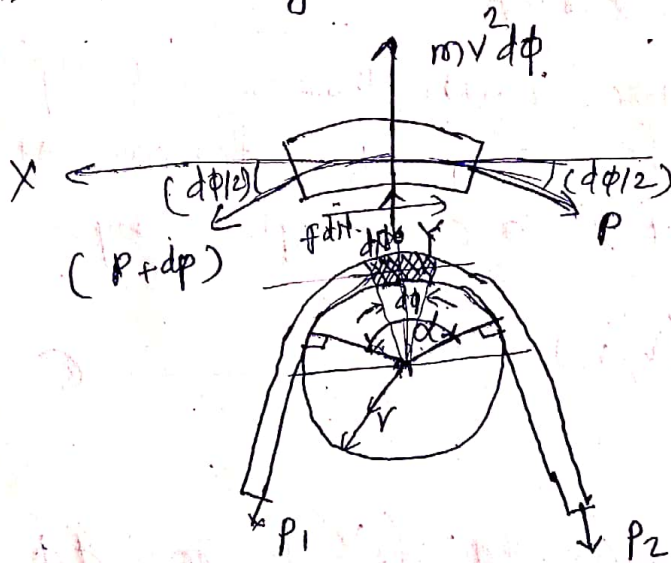 mv²dφ
X
(dφ/2)
(dφ/2)
fdN
P
(P+dp)
dN
Y
dφ
α
r
P1
P2